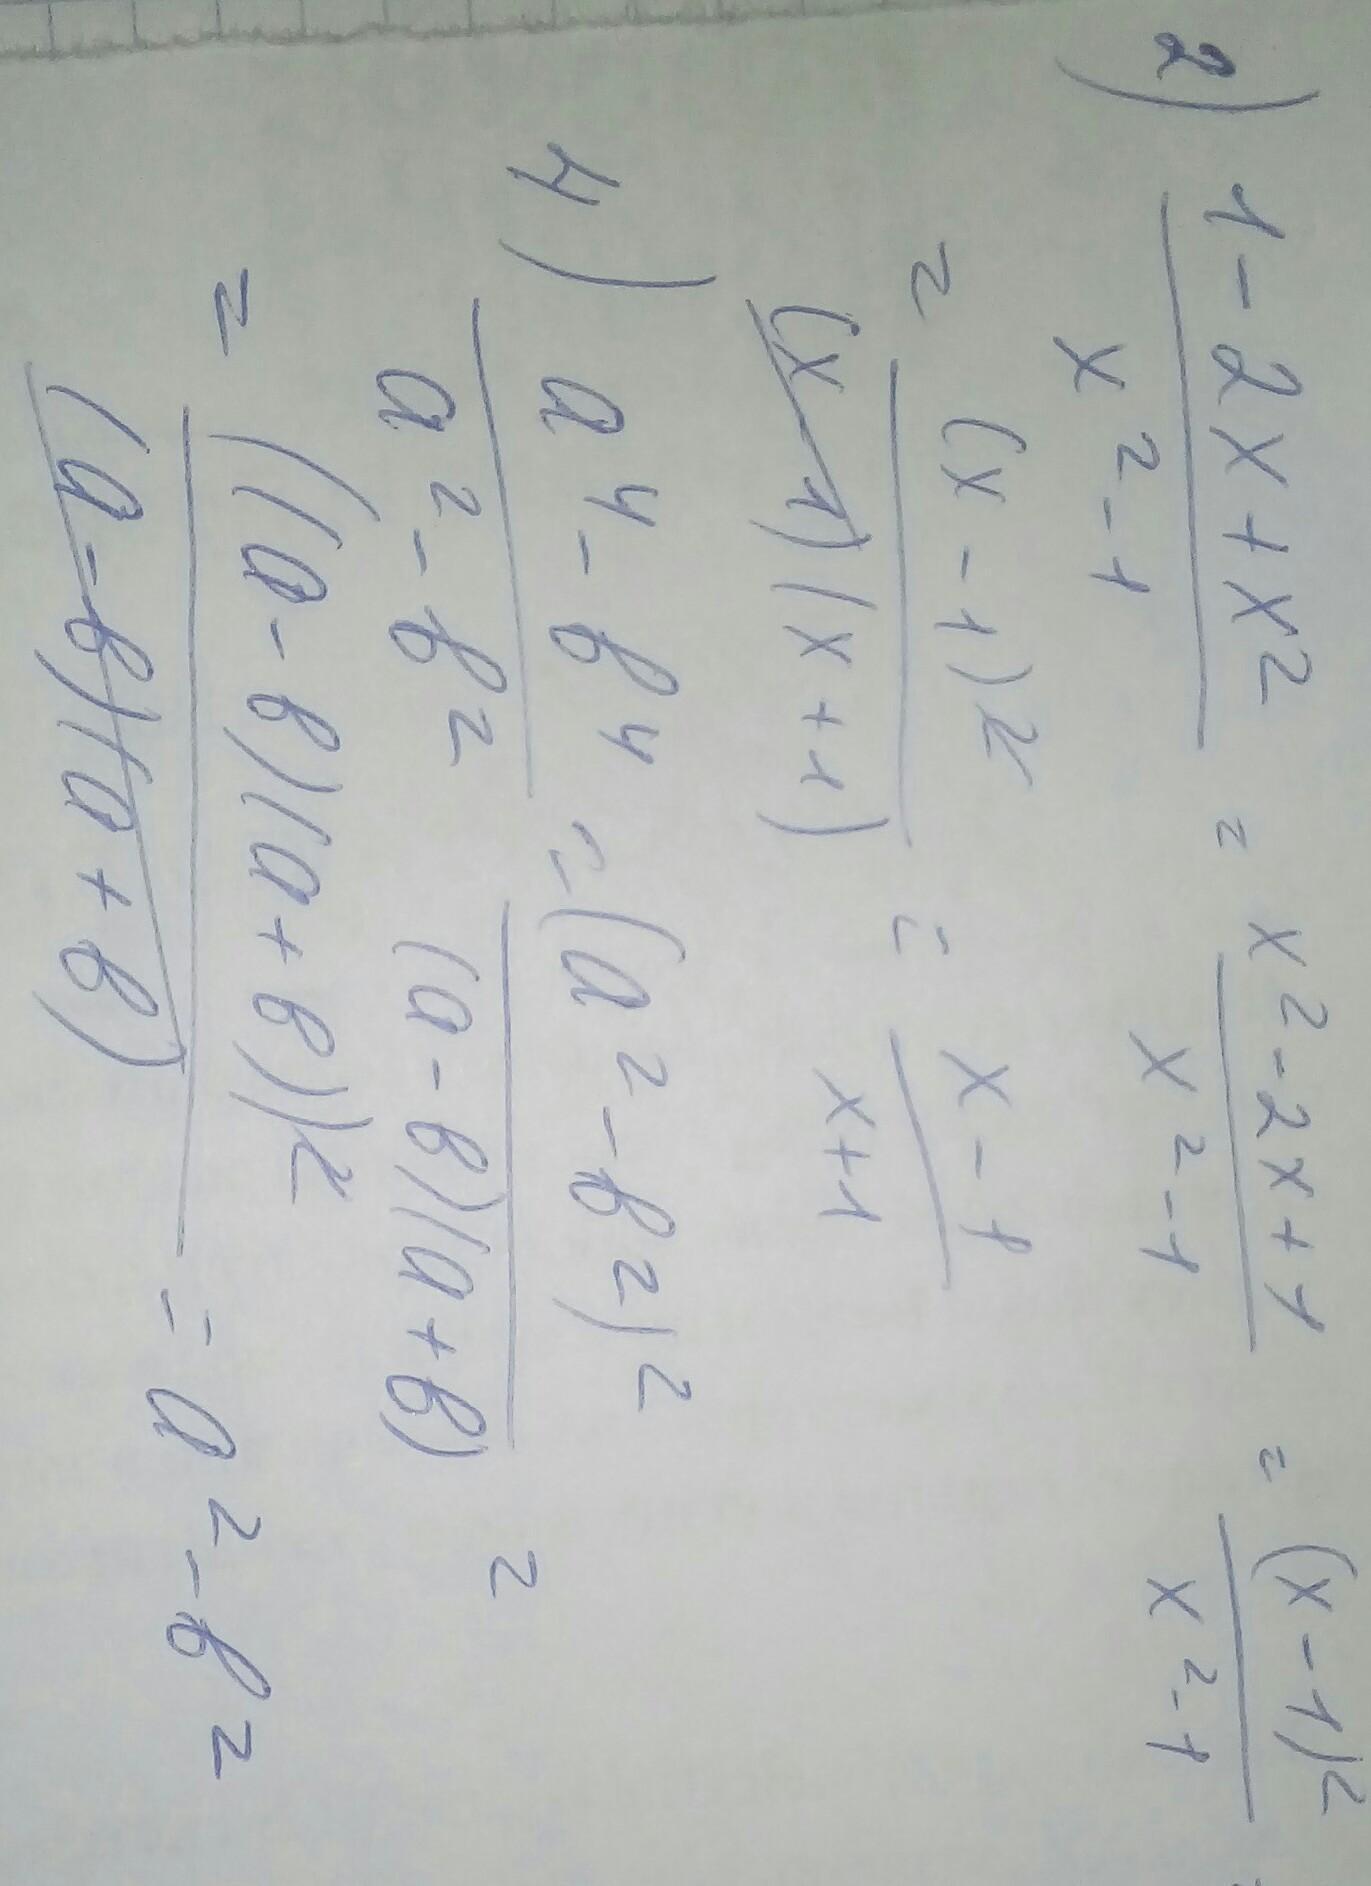 2) (1-2x+x²)/(x²-1) = (x²-2x+1)/(x²-1) = (x-1)²/(x²-1)
= (x-1)²/((x-1)(x+1)) = (x-1)/(x+1)
4) (a⁴-b⁴)/(a²-b²) = (a²-b²)²/((a-b)(a+b)) =
= ((a-b)(a+b))²/((a-b)(a+b)) = a²-b²